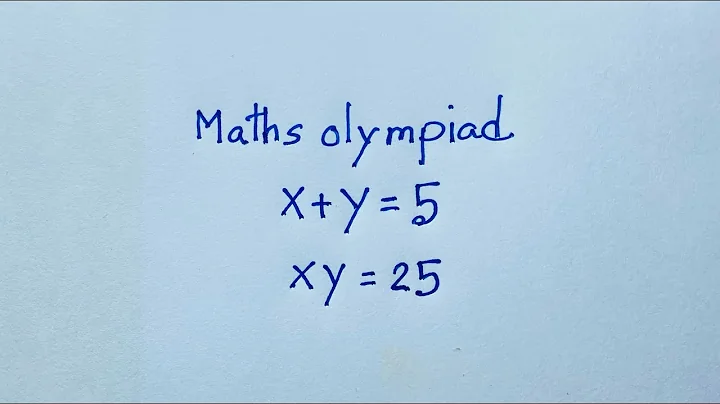 Maths olympiad
x+y=5
xy=25